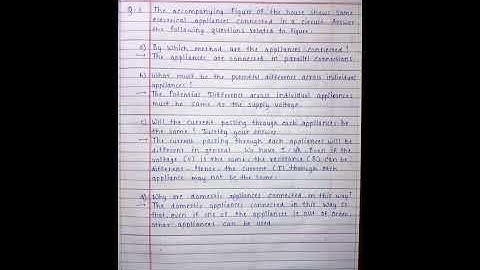 Q.2 The accompanying figure of the house shows some
electrical appliances connected in a circuit. Answer
the following questions related to figure.
a) By Which method are the appliances connected?
→ The appliances are connected in parallel connections.
b) What must be the potential difference across individual
appliances?
→ The Potential Difference across individual appliances
must be same as the supply voltage.
c) Will the current passing through each appliances be
the same? Justify your answer.
→ The current passing through each appliances will be
different in general. We have I = V/R. Even if the
voltage (V) is the same, the resistance (R) can be
different. Hence, the current (I) through each
appliance may not be the same.
d) Why are domestic appliances connected in this way?
→ The domestic appliances connected in this way so
that even if one of the appliances is out of order,
other appliances can be used.